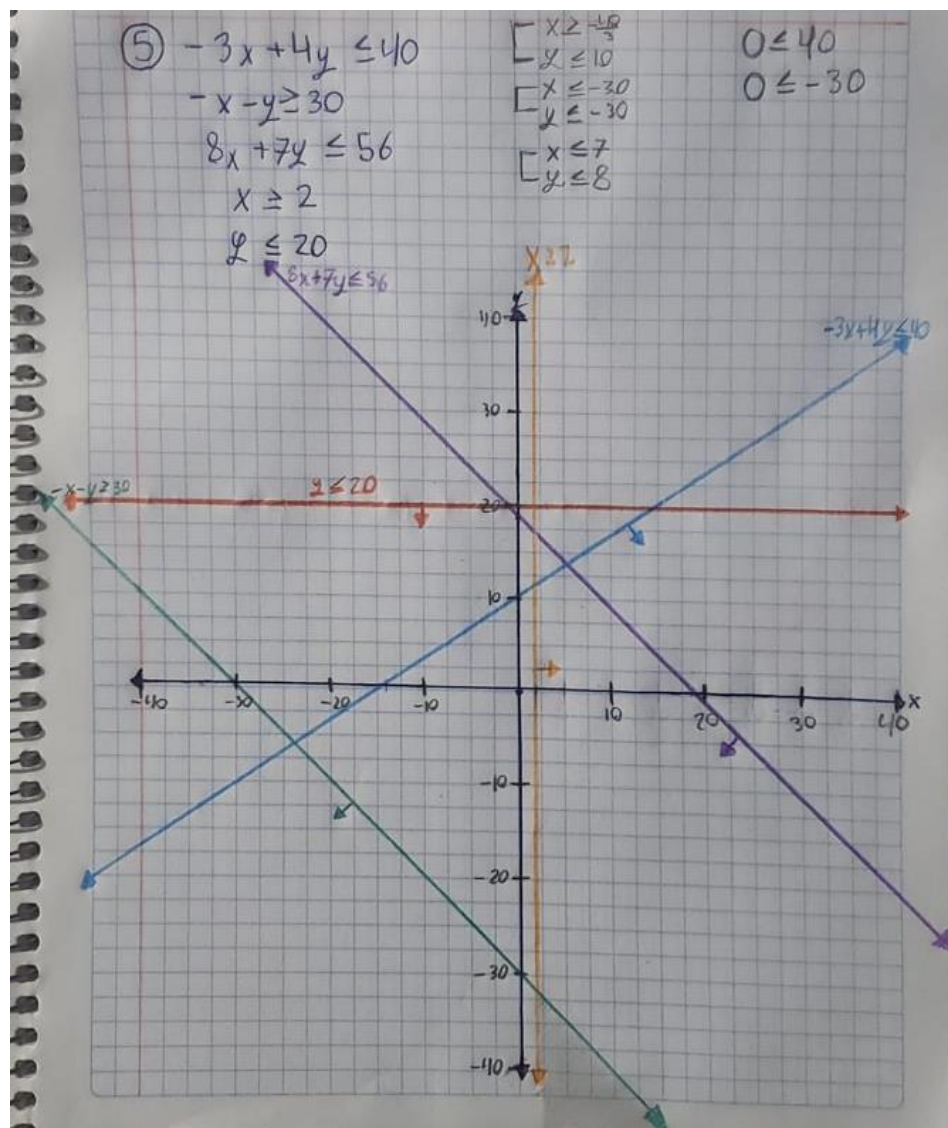 ⑤ -3x+4y ≤40
-x-y≥30
8x+7y ≤ 56
x ≥ 2
y ≤ 20
x ≥ -40/3
y ≤ 10
x ≤ -30
y ≤ -30
x ≤ 7
y ≤ 8
0 ≤ 40
0 ≤ -30
x ≥ 2
8x+7y≤56
y
40
-3x+4y≤40
30
-x-y≥30
y ≤ 20
20
10
-40 -30 -20 -10 10 20 30 40 x
-10
-20
-30
-40